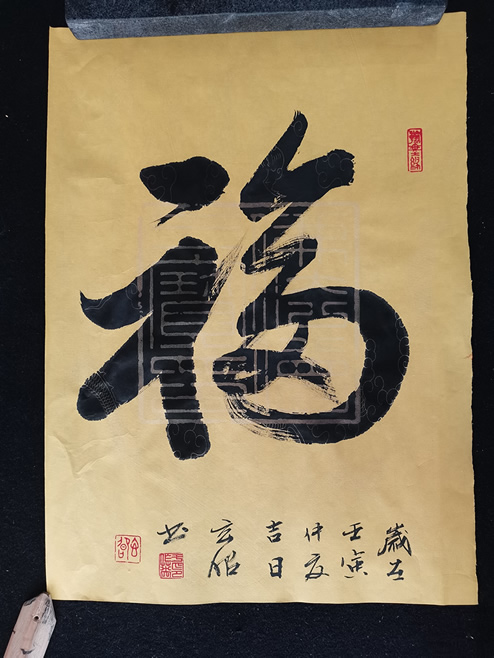 福
歲在
壬寅
仲夏
吉日
玄昭
书